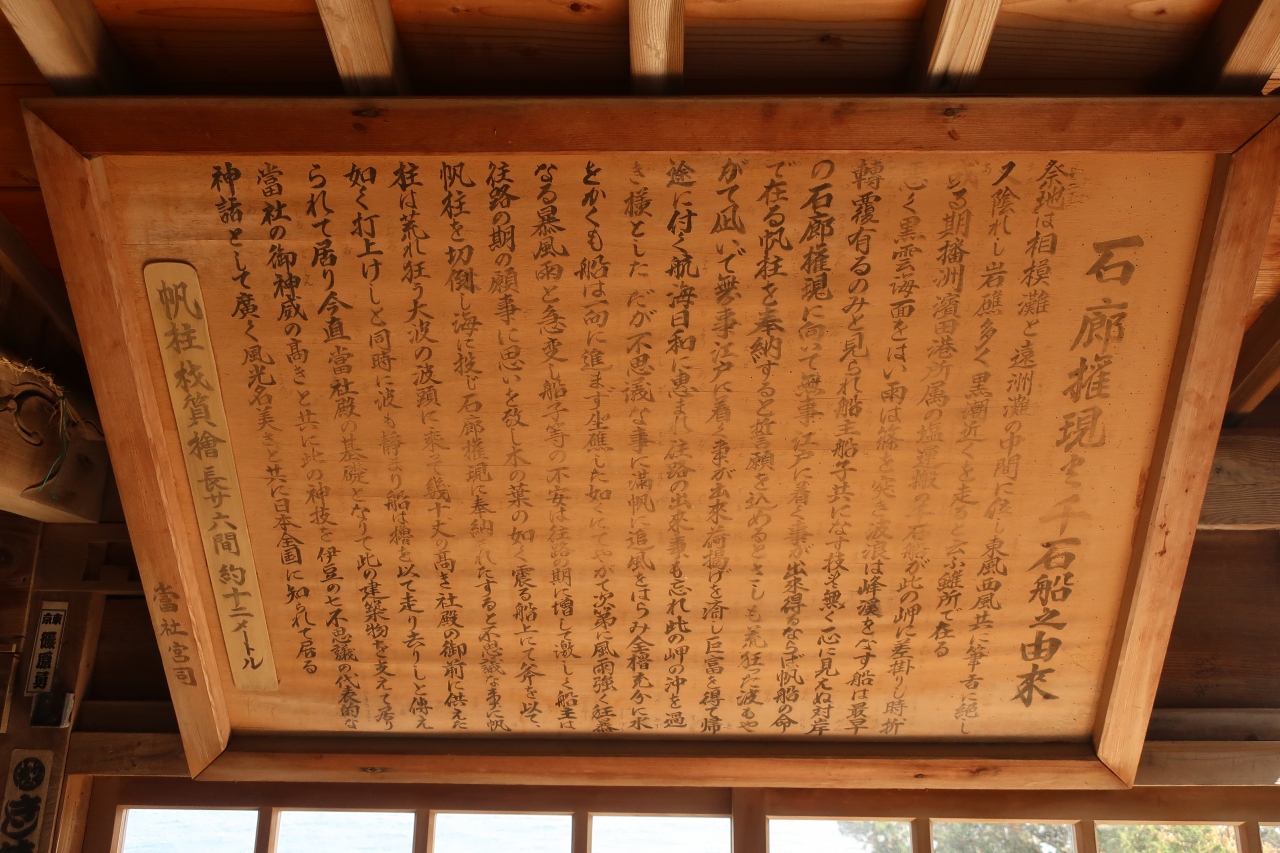 石廊権現と千石船之由来
祭地は相模灘と遠洲灘の中間に位し東風西風共に筆舌に絶し
夕陰れし岩礁多く黒潮近くを走ると云ふ難所で在る
或る期播洲濱田港所属の塩運搬の千石船が此の岬に差掛りし時折
悪く黒雲海面をはい雨は篠を突き波浪は峰渓をなす船は最早
轉覆有るのみと見られ船主船子共になす技も無く心に見えぬ対岸
の石廊権現に向って無事江戸に着く事が出来得るならば帆船の命
で在る帆柱を奉納すると誓言願を込めるとさしも荒狂た波もや
がて凪いで無事江戸に着く事が出来荷揚げを済し巨富を得て帰
途に付く航海日和に恵まれ往路の出来事も忘れ此の岬の沖を過
き様とした だが不思議な事に満帆に追風をはらみ全櫓充かに水
をかくも船は一向に進ます坐礁した如くにてやがて次第に風雨強く狂暴
なる暴風雨と急変し船子等の不安は往路の期に増して激しく船主は
往路の期の願事に思いを致し木の葉の如く震る船上にて斧を以て
帆柱を切倒し海に投じ石廊権現に奉納されたすると不思議な事に帆
柱は荒れ狂う大波の波頭に乗て幾十丈の高き社殿の御前に供えた
如く打上けしと同時に波も静まり船は櫓を以て走り去りしと傳え
られて居り今直當社殿の基礎となりて此の建築物を支えて居り
當社の御神威の高きと共に此の神技を伊豆の七不思議の代表的な
神話として廣く風光名美さと共に日本全国に知られて居る
帆柱 桟質檜 長サ六間 約十二メートル
當社宮司